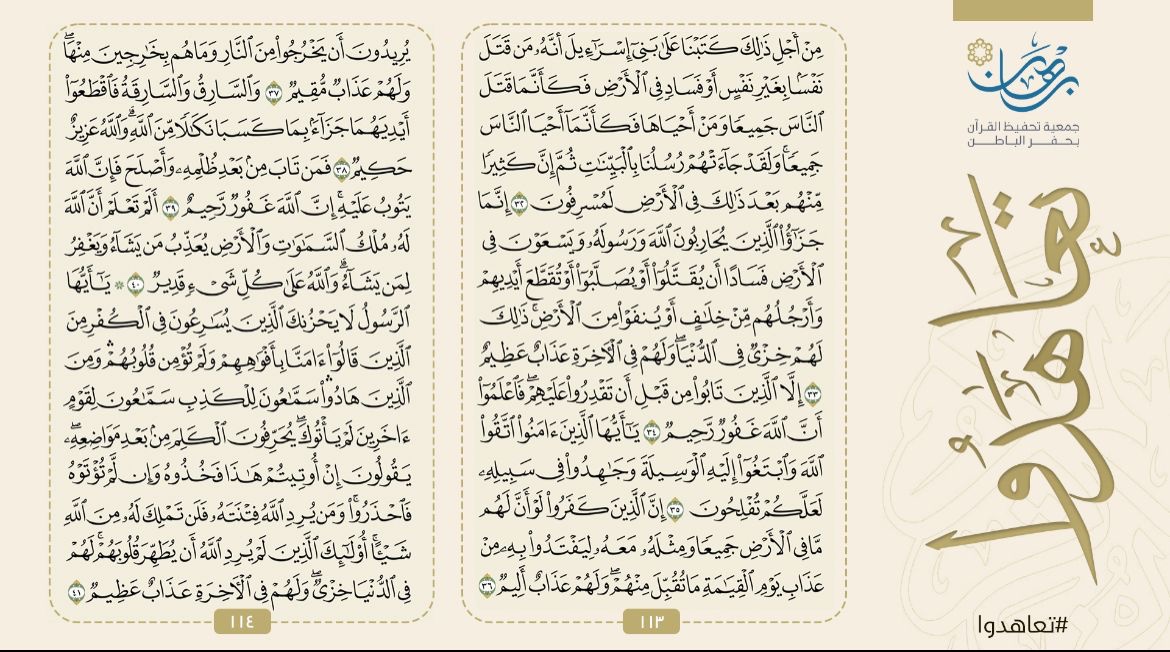 برهان
جمعية تحفيظ القرآن
بحفر الباطن
تعاهدوا
#تعاهدوا
مِنْ أَجْلِ ذَٰلِكَ كَتَبْنَا عَلَىٰ بَنِىٓ إِسْرَٰٓءِيلَ أَنَّهُۥ مَن قَتَلَ
نَفْسًۢا بِغَيْرِ نَفْسٍ أَوْ فَسَادٍ فِى ٱلْأَرْضِ فَكَأَنَّمَا قَتَلَ
ٱلنَّاسَ جَمِيعًا وَمَنْ أَحْيَاهَا فَكَأَنَّمَآ أَحْيَا ٱلنَّاسَ
جَمِيعًا ۚ وَلَقَدْ جَآءَتْهُمْ رُسُلُنَا بِٱلْبَيِّنَٰتِ ثُمَّ إِنَّ كَثِيرًا
مِّنْهُم بَعْدَ ذَٰلِكَ فِى ٱلْأَرْضِ لَمُسْرِفُونَ ٣٢ إِنَّمَا
جَزَٰٓؤُا۟ ٱلَّذِينَ يُحَارِبُونَ ٱللَّهَ وَرَسُولَهُۥ وَيَسْعَوْنَ فِى
ٱلْأَرْضِ فَسَادًا أَن يُقَتَّلُوٓا۟ أَوْ يُصَلَّبُوٓا۟ أَوْ تُقَطَّعَ أَيْدِيهِمْ
وَأَرْجُلُهُم مِّنْ خِلَٰفٍ أَوْ يُنفَوْا۟ مِنَ ٱلْأَرْضِ ۚ ذَٰلِكَ
لَهُمْ خِزْىٌ فِى ٱلدُّنْيَا ۖ وَلَهُمْ فِى ٱلْءَاخِرَةِ عَذَابٌ عَظِيمٌ
٣٣ إِلَّا ٱلَّذِينَ تَابُوا۟ مِن قَبْلِ أَن تَقْدِرُوا۟ عَلَيْهِمْ ۖ فَٱعْلَمُوٓا۟
أَنَّ ٱللَّهَ غَفُورٌ رَّحِيمٌ ٣٤ يَٰٓأَيُّهَا ٱلَّذِينَ ءَامَنُوا۟ ٱتَّقُوا۟
ٱللَّهَ وَٱبْتَغُوٓا۟ إِلَيْهِ ٱلْوَسِيلَةَ وَجَٰهِدُوا۟ فِى سَبِيلِهِۦ
لَعَلَّكُمْ تُفْلِحُونَ ٣٥ إِنَّ ٱلَّذِينَ كَفَرُوا۟ لَوْ أَنَّ لَهُم
مَّا فِى ٱلْأَرْضِ جَمِيعًا وَمِثْلَهُۥ مَعَهُۥ لِيَفْتَدُوا۟ بِهِۦ مِنْ
عَذَابِ يَوْمِ ٱلْقِيَٰمَةِ مَا تُقُبِّلَ مِنْهُمْ ۖ وَلَهُمْ عَذَابٌ أَلِيمٌ ٣٦
١١٣
يُرِيدُونَ أَن يَخْرُجُوا۟ مِنَ ٱلنَّارِ وَمَا هُم بِخَٰرِجِينَ مِنْهَا ۖ
وَلَهُمْ عَذَابٌ مُّقِيمٌ ٣٧ وَٱلسَّارِقُ وَٱلسَّارِقَةُ فَٱقْطَعُوٓا۟
أَيْدِيَهُمَا جَزَآءًۢ بِمَا كَسَبَا نَكَٰلًا مِّنَ ٱللَّهِ ۗ وَٱللَّهُ عَزِيزٌ
حَكِيمٌ ٣٨ فَمَن تَابَ مِنۢ بَعْدِ ظُلْمِهِۦ وَأَصْلَحَ فَإِنَّ ٱللَّهَ
يَتُوبُ عَلَيْهِ ۗ إِنَّ ٱللَّهَ غَفُورٌ رَّحِيمٌ ٣٩ أَلَمْ تَعْلَمْ أَنَّ ٱللَّهَ
لَهُۥ مُلْكُ ٱلسَّمَٰوَٰتِ وَٱلْأَرْضِ يُعَذِّبُ مَن يَشَآءُ وَيَغْفِرُ
لِمَن يَشَآءُ ۗ وَٱللَّهُ عَلَىٰ كُلِّ شَىْءٍ قَدِيرٌ ٤٠ ۞ يَٰٓأَيُّهَا
ٱلرَّسُولُ لَا يَحْزُنكَ ٱلَّذِينَ يُسَٰرِعُونَ فِى ٱلْكُفْرِ مِنَ
ٱلَّذِينَ قَالُوٓا۟ ءَامَنَّا بِأَفْوَٰهِهِمْ وَلَمْ تُؤْمِن قُلُوبُهُمْ ۛ وَمِنَ
ٱلَّذِينَ هَادُوا۟ ۛ سَمَّٰعُونَ لِلْكَذِبِ سَمَّٰعُونَ لِقَوْمٍ
ءَاخَرِينَ لَمْ يَأْتُوكَ ۖ يُحَرِّفُونَ ٱلْكَلِمَ مِنۢ بَعْدِ مَوَاضِعِهِۦ ۖ
يَقُولُونَ إِنْ أُوتِيتُمْ هَٰذَا فَخُذُوهُ وَإِن لَّمْ تُؤْتَوْهُ
فَٱحْذَرُوا۟ ۚ وَمَن يُرِدِ ٱللَّهُ فِتْنَتَهُۥ فَلَن تَمْلِكَ لَهُۥ مِنَ ٱللَّهِ
شَيْـًٔا ۚ أُو۟لَٰٓئِكَ ٱلَّذِينَ لَمْ يُرِدِ ٱللَّهُ أَن يُطَهِّرَ قُلُوبَهُمْ ۚ لَهُمْ
فِى ٱلدُّنْيَا خِزْىٌ ۖ وَلَهُمْ فِى ٱلْءَاخِرَةِ عَذَابٌ عَظِيمٌ ٤١
١١٤